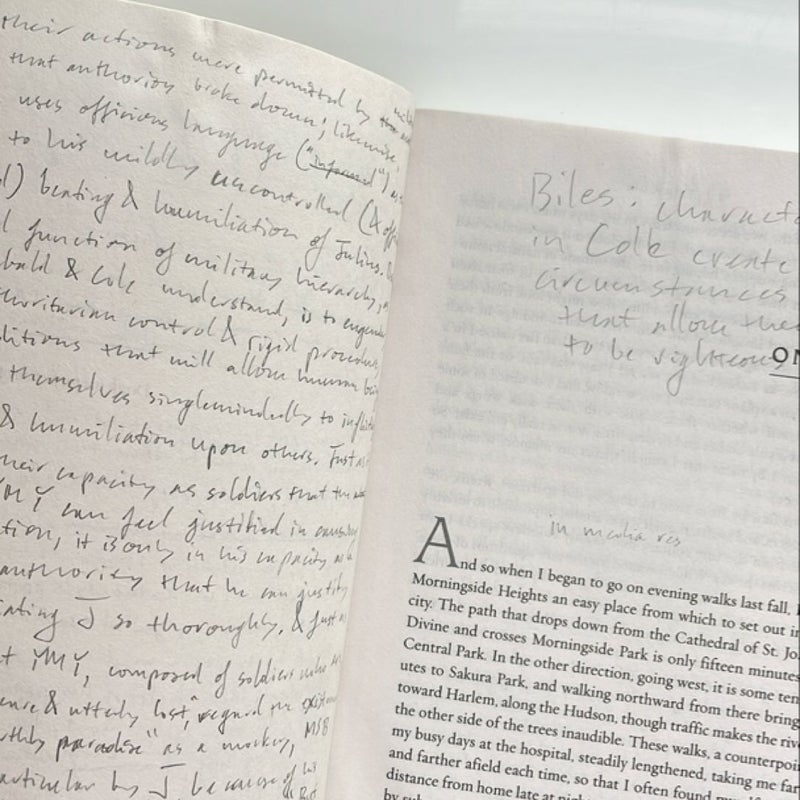 their actions were permitted by
that authority broke down; likewise,
uses officious language ("
to his mildly uncontrolled (&
beating & humiliation of Julius.
function of military hierarchy,
bald & Cole understand, is to
thoritarian control & rigid procedure
ditions that will allow human
themselves singlemindedly to
& humiliation upon others. Just as
heir capacity as soldiers that the
MY can feel justified in
tion, it is only in his capacity as
authority that he can justify
iating J so thoroughly, & just as
MY, composed of soldiers who
& utterly lost, regard
thly paradise" as a mockery, MSB
articular by J because of his
Biles: charact
in Cole create
circumstances
that allow the
to be righteous
ON
in media res
And so when I began to go on evening walks last fall,
Morningside Heights an easy place from which to set out in
city. The path that drops down from the Cathedral of St. Jo
Divine and crosses Morningside Park is only fifteen minutes
Central Park. In the other direction, going west, it is some ten
utes to Sakura Park, and walking northward from there bring
toward Harlem, along the Hudson, though traffic makes the riv
the other side of the trees inaudible. These walks, a counterpoi
my busy days at the hospital, steadily lengthened, taking me far
and farther afield each time, so that I often found
distance from home late at